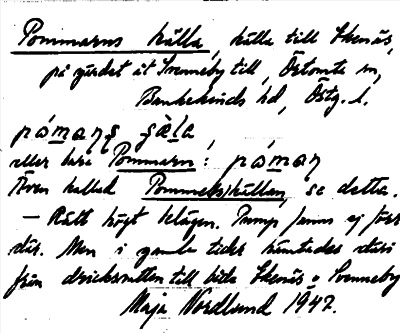 Pommarns källa, källa till Ekenäs,
på gärdet åt Svenneby till, Östomte sn,
Bankekinds hd, Östg. l.
pómaṇṣ ɕæ̀la,
eller bara Pommarn: póman
Även kallad Pommelskällan, se detta.
— Rätt högt belägen. Pump finns ej förr
där. Men i gamla tider hämtades däri
från dricksvatten till hela Ekenäs o Svenneby
Maja Nordlund 1947.